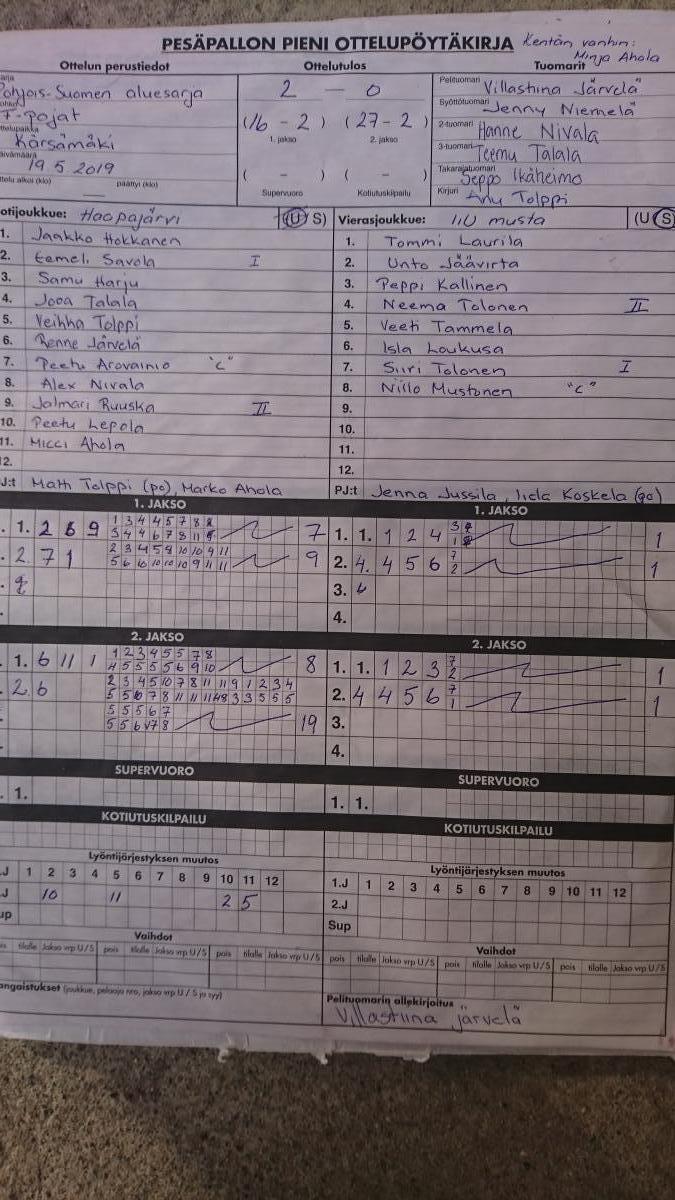 PESÄPALLON PIENI OTTELUPÖYTÄKIRJA
Kentän vanhin:
Minja Ahola
Ottelun perustiedot
Ottelutulos
Tuomarit
Pohjois-Suomen aluesarja
F-pojat
Kärsämäki
19.5 2019
päättyi (klo)
2 - 0
(16 - 2) (27 - 2)
1. jakso 2. jakso
( - ) ( - )
Supervuoro Kotiutuskilpailu
Pelituomari Villastiina Järvelä
Syöttötuomari Jenny Niemelä
2-tuomari Hanne Nivala
3-tuomari Teemu Talala
Takarajatuomari Seppo Ikäheimo
Kirjuri Anu Tolppi
otijoukkue: Haapajärvi (U S)
1. Jaakko Hokkanen
2. Eemeli Savola I
3. Samu Harju
4. Jooa Talala
5. Veihha Tolppi
6. Renne Järvelä
7. Peetu Arovainio "C"
8. Alex Nivala
9. Jalmari Ruuska II
10. Peetu Lepola
11. Micci Ahola
12.
PJ:t Matti Tolppi (po), Marko Ahola
Vierasjoukkue: IiU musta (U S
1. Tommi Laurila
2. Unto Jäävirta
3. Peppi Kallinen
4. Neema Tolonen II
5. Veeti Tammela
6. Isla Loukusa
7. Siiri Tolonen I
8. Niilo Mustonen "C"
9.
10.
11.
12.
PJ:t Jenna Jussila, Iida Koskela
1. JAKSO
1. 2 6 9 7
2. 7 1 9
1. JAKSO
1. 1. 1 2 4 1
2. 4. 4 5 6 7 2 1
3. 6
4.
2. JAKSO
1. 6 11 1 8
2. 6
19
2. JAKSO
1. 1. 1 2 3 7 2 1
2. 4 4 5 6 7 1 1
3.
4.
SUPERVUORO
1.
SUPERVUORO
1. 1.
KOTIUTUSKILPAILU
KOTIUTUSKILPAILU
Lyöntijärjestyksen muutos
.J 1 2 3 4 5 6 7 8 9 10 11 12
J 10 11 2 5
up
Lyöntijärjestyksen muutos
1.J 1 2 3 4 5 6 7 8 9 10 11 12
2.J
Sup
Vaihdot
tilalle Jakso vrp U/S pois tilalle Jakso vrp U/S pois tilalle Jakso vrp U/S
Vaihdot
pois tilalle Jakso vrp U/S pois tilalle Jakso vrp U/S pois tilalle Jakso vrp U/S
angaistukset (joukkue, pelaaja nro, jakso vrp U / S ja syy)
Pelituomarin allekirjoitus
Villastiina Järvelä